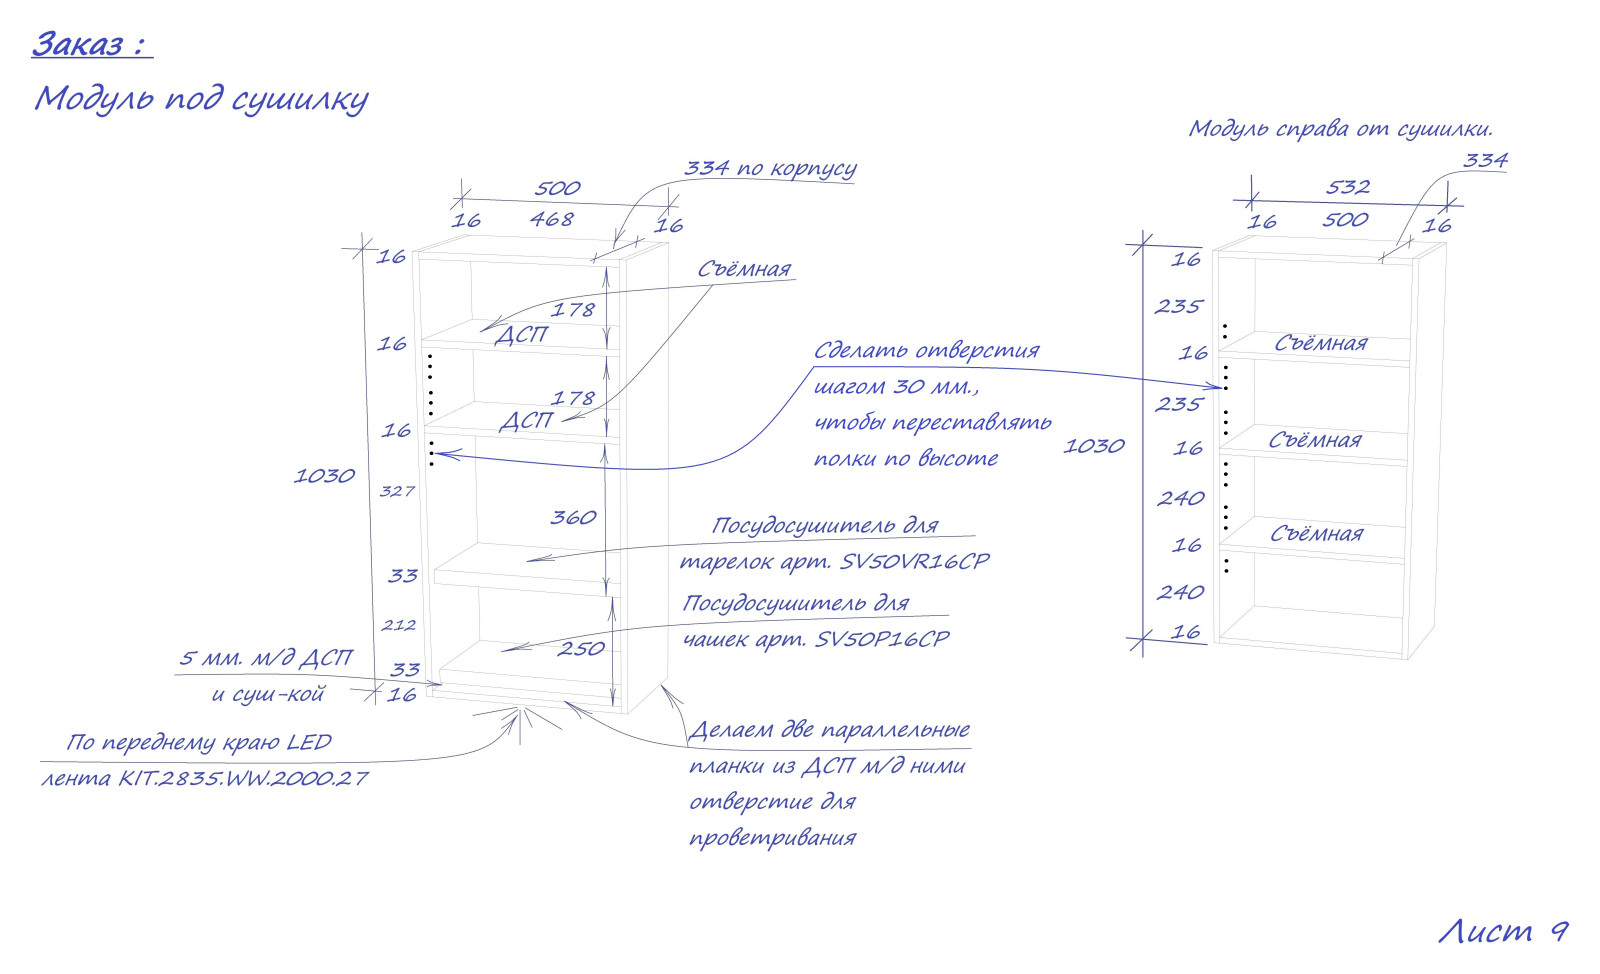 Заказ :
Модуль под сушилку
334 по корпусу
500
16
468
16
16
Съёмная
178
ДСП
16
178
ДСП
16
1030
327
360
33
212
250
33
16
Сделать отверстия
шагом 30 мм.,
чтобы переставлять
полки по высоте
Посудосушитель для
тарелок арт. SV50VR16CP
Посудосушитель для
чашек арт. SV50P16CP
5 мм. м/д ДСП
и суш-кой
По переднему краю LED
лента KIT.2835.WW.2000.27
Делаем две параллельные
планки из ДСП м/д ними
отверстие для
проветривания
Модуль справа от сушилки.
334
532
16
500
16
16
235
16
Съёмная
235
1030
16
Съёмная
240
16
Съёмная
240
16
Лист 9